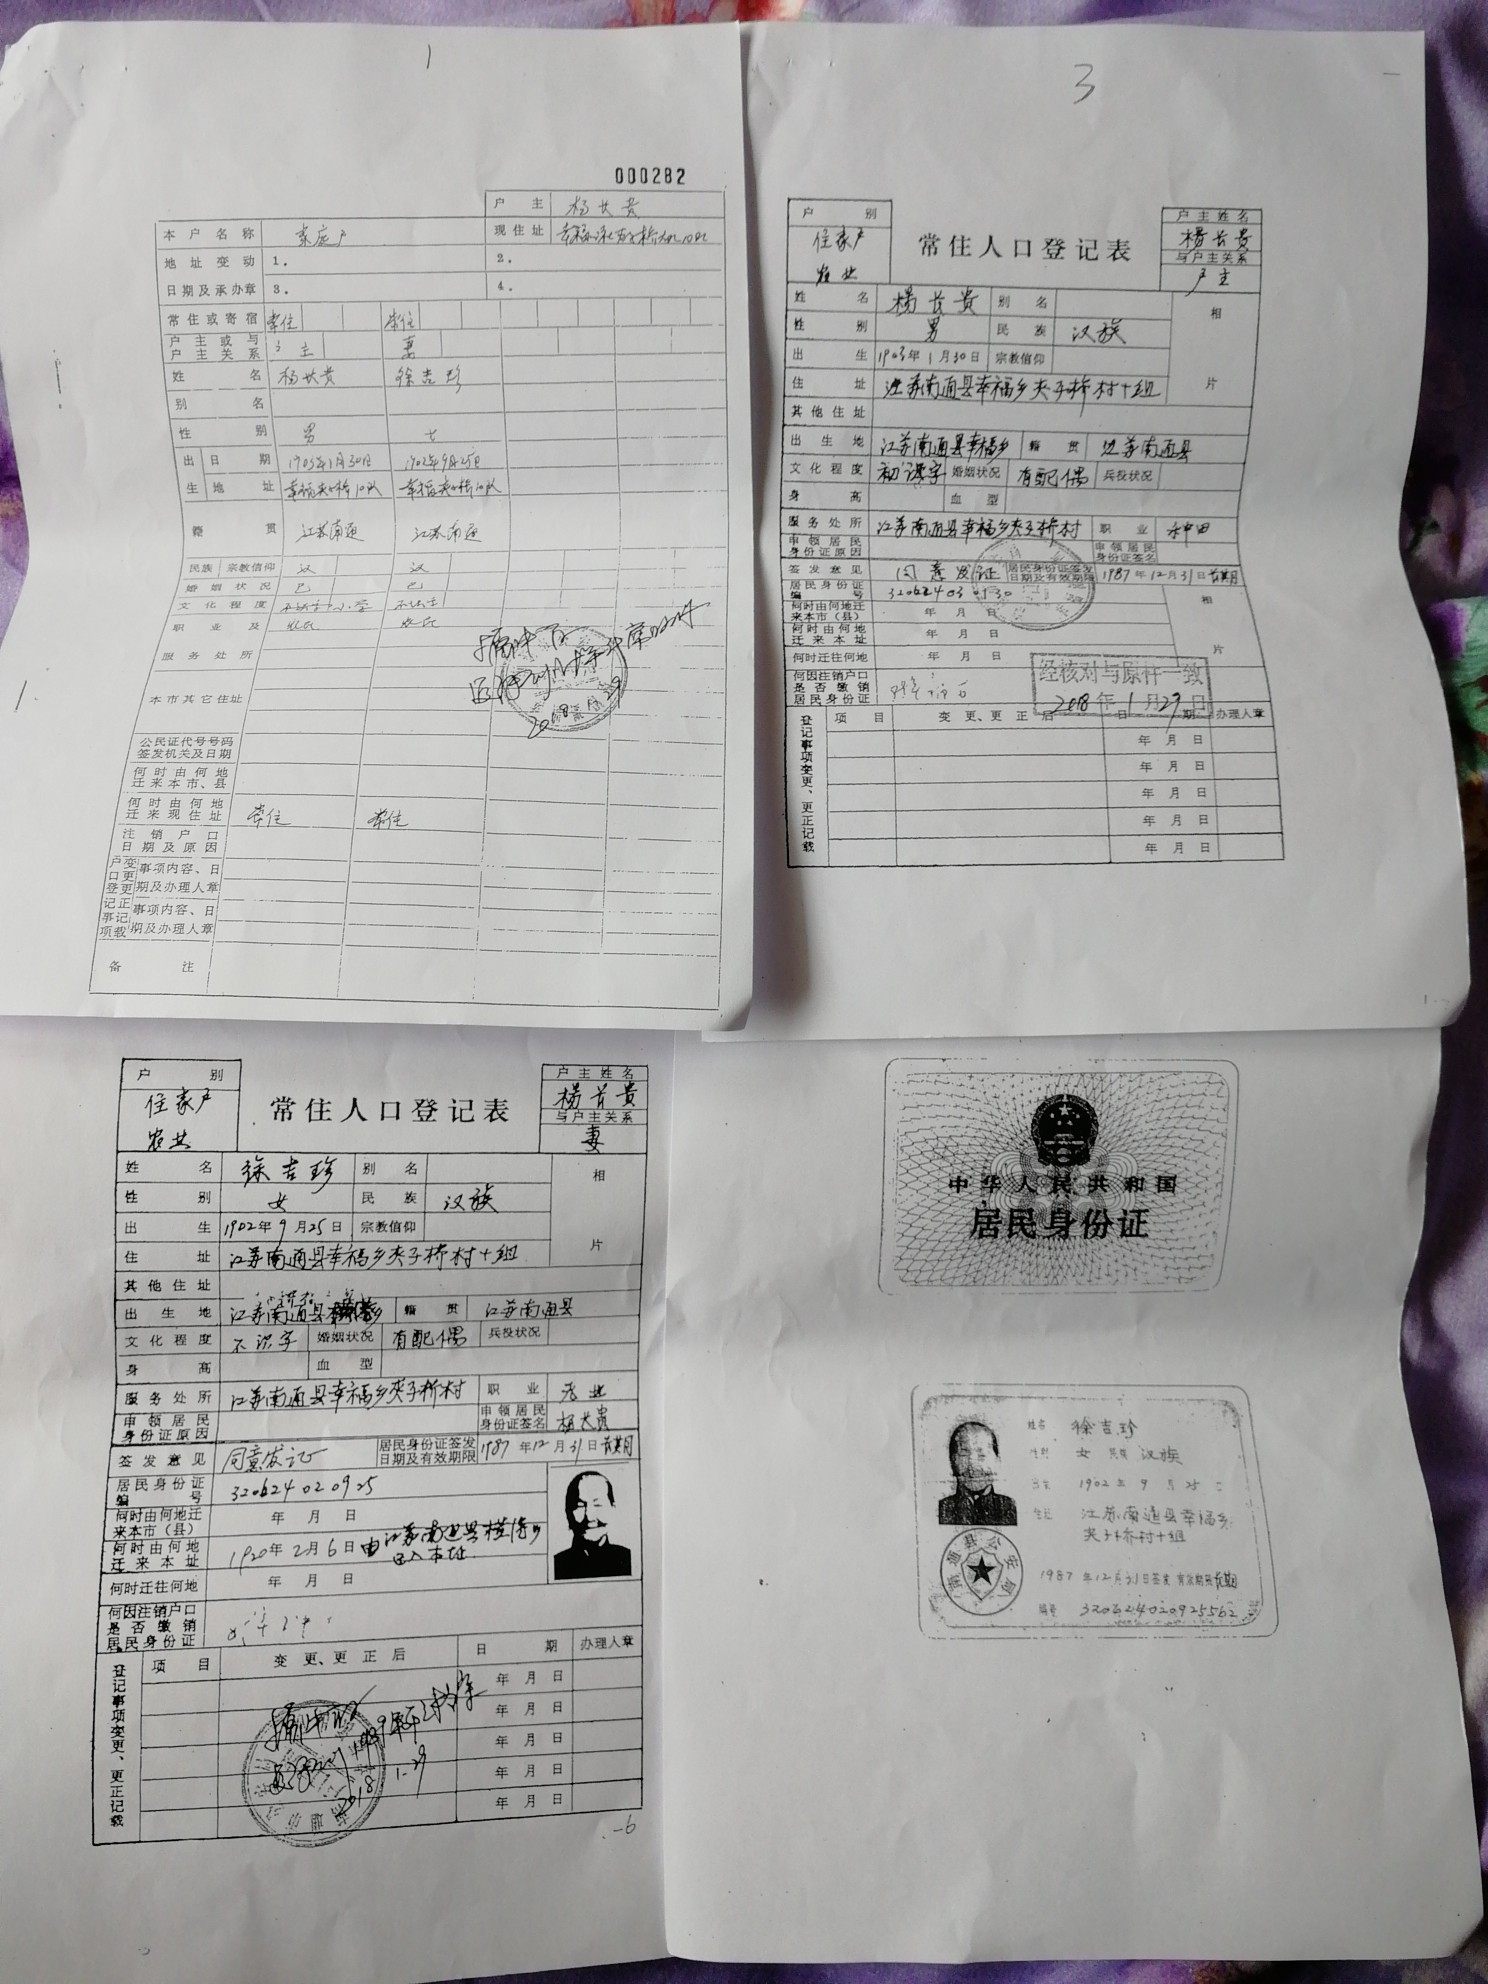 1
000282
户主 杨长贵
本户名称 家庭户 现住址
地址变动 1. 2.
日期及承办章 3. 4.
常住或寄宿 常住 常住
户主或与户主关系 户主 妻
姓名 杨长贵 徐吉珍
别名
性别 男 女
出生 日期 1903年1月30日 1902年9月25日
地址
籍贯 江苏南通 江苏南通
民族 宗教信仰 汉 汉
婚姻状况 已 已
文化程度
职业及
服务处所
本市其它住址
公民证代号号码
签发机关及日期
何时由何地
迁来本市、县
何时由何地
迁来现住址 常住 常住
注销户口
日期及原因
户口变更登记 事项内容、日
期及办理人章
更正记事项载 事项内容、日
期及办理人章
备注
3
户别 住家户 农业
常住人口登记表
户主姓名 杨长贵
与户主关系 户主
姓名 杨长贵 别名 相片
性别 男 民族 汉族
出生 1903年1月30日 宗教信仰
住址 江苏南通县幸福乡夹子桥村十组
其他住址
出生地 江苏南通县幸福乡 籍贯 江苏南通县
文化程度 初识字 婚姻状况 有配偶 兵役状况
身高 血型
服务处所 江苏南通县幸福乡夹子桥村 职业 种田
申领居民身份证原因 申领居民身份证签名
签发意见 同意发证 居民身份证签发日期及有效期限 1987年12月31日长期
居民身份证编号 320624030130 相片
何时由何地迁来本市(县) 年 月 日
何时由何地迁来本址 年 月 日
何时迁往何地 年 月 日
何因注销户口是否缴销居民身份证
经核对与原件一致
2018年1月29日
登记事项变更、更正记载 项目 变更、更正后 日期 办理人章
年 月 日
年 月 日
年 月 日
年 月 日
年 月 日
户别 住家户 农业
常住人口登记表
户主姓名 杨长贵
与户主关系 妻
姓名 徐吉珍 别名 相片
性别 女 民族 汉族
出生 1902年9月25日 宗教信仰
住址 江苏南通县幸福乡夹子桥村十组
其他住址
出生地 江苏南通县 籍贯 江苏南通县
文化程度 不识字 婚姻状况 有配偶 兵役状况
身高 血型
服务处所 江苏南通县幸福乡夹子桥村 职业 农业
申领居民身份证原因 申领居民身份证签名 杨长贵
签发意见 同意发证 居民身份证签发日期及有效期限 1987年12月31日长期
居民身份证编号 320624020925
何时由何地迁来本市(县) 年 月 日
何时由何地迁来本址 1920年2月6日由江苏南通县 迁入本址
何时迁往何地 年 月 日
何因注销户口是否缴销居民身份证
登记事项变更、更正记载 项目 变更、更正后 日期 办理人章
年 月 日
年 月 日
年 月 日
年 月 日
年 月 日
2018 1-29
-6
中华人民共和国
居民身份证
姓名 徐吉珍
性别 女 民族 汉族
出生 1902年9月25日
住址 江苏南通县幸福乡
夹子桥村十组
1987年12月31日签发 有效期限长期
编号 320624020925562
南通县公安局